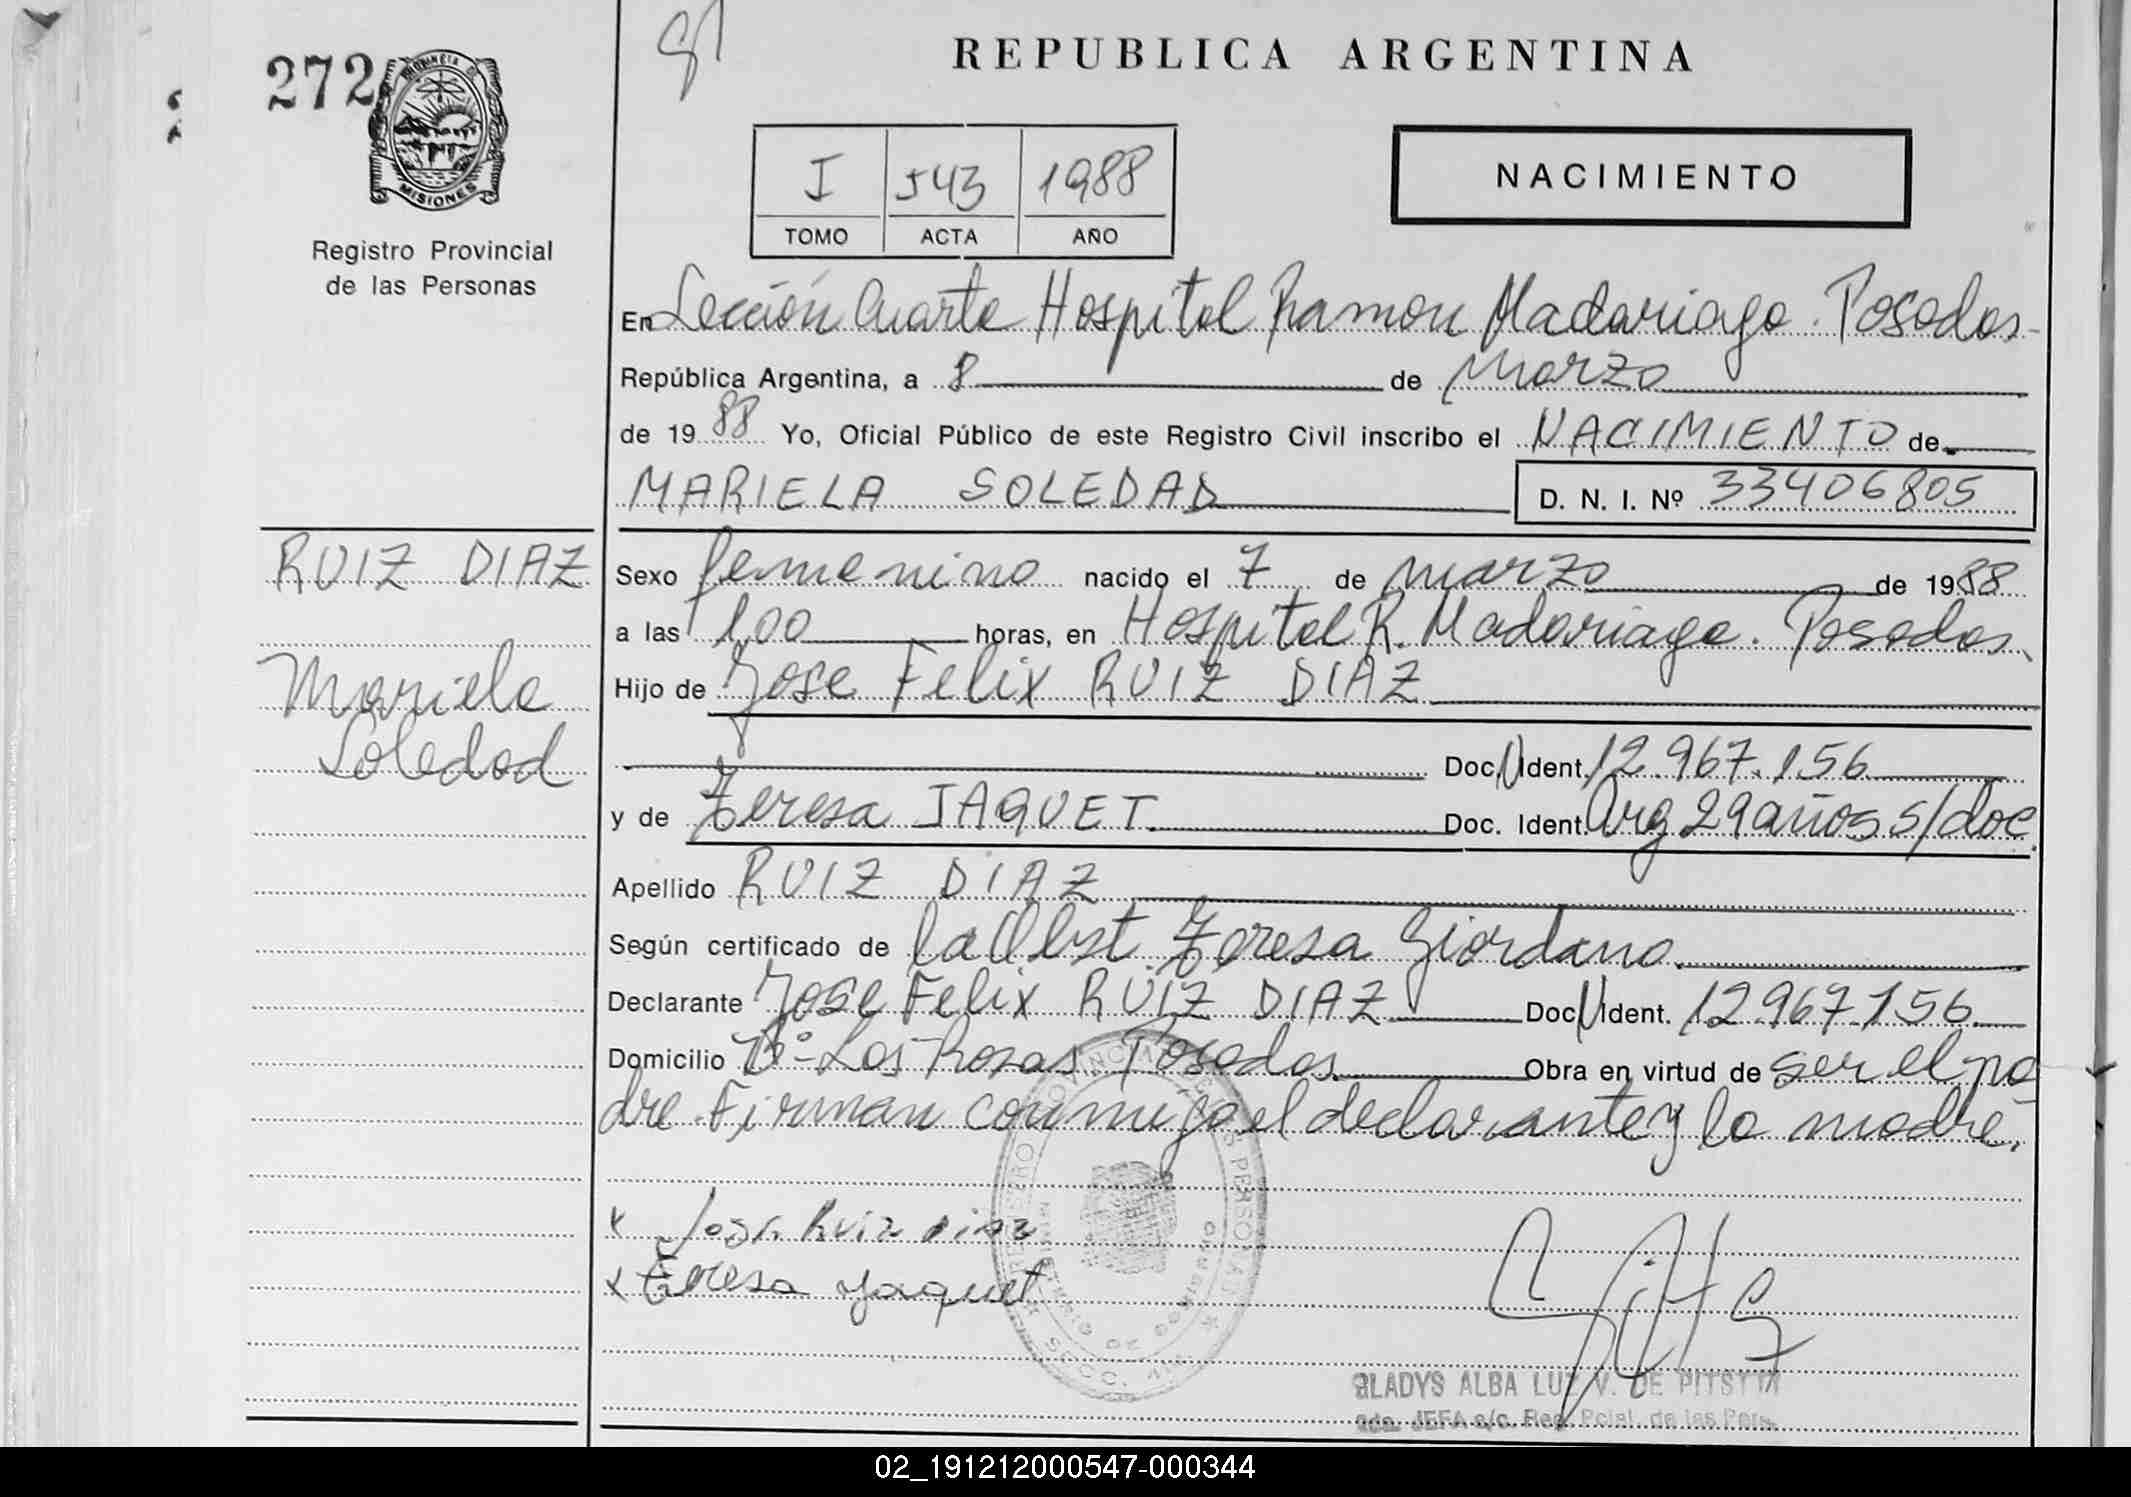 272
PROVINCIA DE
MISIONES
Registro Provincial
de las Personas
REPUBLICA ARGENTINA
I 543 1988
TOMO ACTA AÑO
NACIMIENTO
En Sección Cuarta Hospital Ramon Madariaga. Posadas-
República Argentina, a 8 de Marzo
de 1988 Yo, Oficial Público de este Registro Civil inscribo el NACIMIENTO de
MARIELA SOLEDAD D. N. I. Nº 33406805
RUIZ DIAZ
Mariela
Soledad
Sexo femenino nacido el 7 de marzo de 1988
a las 1,00 horas, en Hospital R. Madariaga. Posadas.
Hijo de Jose Felix RUIZ DIAZ
Doc. Ident. 12.967.156
y de Teresa JAQUET Doc. Ident. Arg 29 años s/doc.
Apellido RUIZ DIAZ
Según certificado de la Obst. Teresa Giordano.
Declarante Jose Felix RUIZ DIAZ Doc. Ident. 12.967.156
Domicilio Bº Las Rosas Posadas. Obra en virtud de ser el pa
dre. Firman conmigo el declarante y la madre.
x Jose Ruiz Diaz
x Teresa Jaquet
GLADYS ALBA LUZ V. DE
JEFA a/c. Reg. Pcial. de las Pers.
02_191212000547-000344